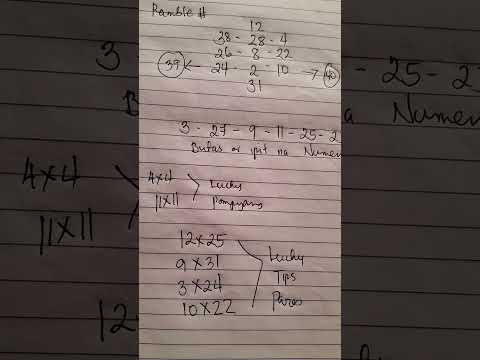 Ramble #
12
38 - 28 - 4
26 - 8 - 22
39 ← 24 - 2 - 10 → 40
31
3 - 27 - 9 - 11 - 25 - 2
Butas or ipit na Numer
4x4
11x11
Lucky
12x25
9x31
3x24
10x22
Lucky
Tips
Pares